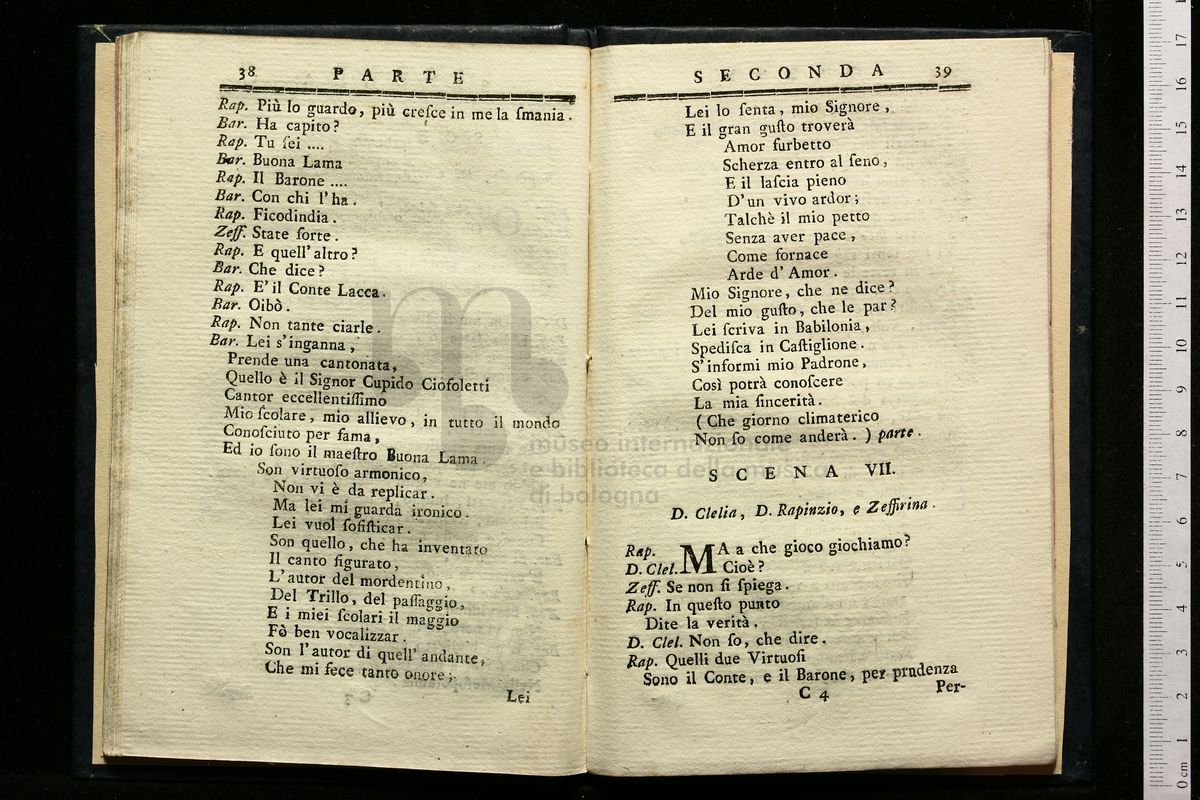 38 PARTE
Rap. Più lo guardo, più creſce in me la ſmania.
Bar. Ha capito?
Rap. Tu ſei ....
Bar. Buona Lama
Rap. Il Barone ....
Bar. Con chi l'ha.
Rap. Ficodindia.
Zeff. State forte.
Rap. E quell'altro?
Bar. Che dice?
Rap. E'il Conte Lacca.
Bar. Oibò.
Rap. Non tante ciarle.
Bar. Lei s'inganna,
Prende una cantonata,
Quello è il Signor Cupido Ciofoletti
Cantor eccellentiſſimo
Mio ſcolare, mio allievo, in tutto il mondo
Conoſciuto per fama,
Ed io ſono il maeſtro Buona Lama.
Son virtuoſo armonico,
Non vi è da replicar.
Ma lei mi guarda ironico.
Lei vuol ſofiſticar.
Son quello, che ha inventato
Il canto figurato,
L'autor del mordentino,
Del Trillo, del paſſaggio,
E i miei ſcolari il maggio
Fò ben vocalizzar.
Son l'autor di quell' andante,
Che mi fece tanto onore;
Lei
SECONDA 39
Lei lo ſenta, mio Signore,
E il gran guſto troverà
Amor furbetto
Scherza entro al ſeno,
E il laſcia pieno
D'un vivo ardor;
Talchè il mio petto
Senza aver pace,
Come fornace
Arde d'Amor.
Mio Signore, che ne dice?
Del mio guſto, che le par?
Lei ſcriva in Babilonia,
Spediſca in Caſtiglione.
S'informi mio Padrone,
Così potrà conoſcere
La mia ſincerità.
(Che giorno climaterico
Non ſo come anderà.) parte.
SCENA VII.
D. Clelia, D. Rapinzio, e Zeffirina.
Rap. MA a che gioco giochiamo?
D. Clel. Cioè?
Zeff. Se non ſi ſpiega.
Rap. In queſto punto
Dite la verità.
D. Clel. Non ſo, che dire.
Rap. Quelli due Virtuoſi
Sono il Conte, e il Barone, per prudenza
C 4 Per-
museo internazionale
e biblioteca della musica
di bologna
0 cm 1 2 3 4 5 6 7 8 9 10 11 12 13 14 15 16 17